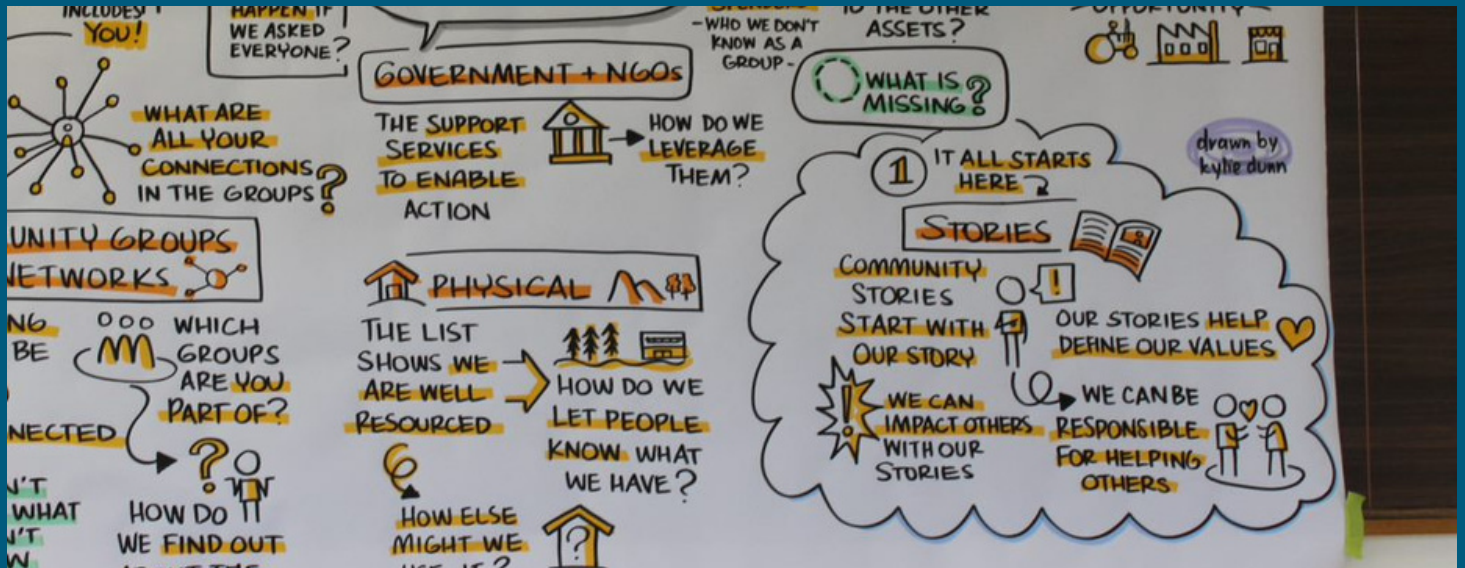 INCLUDES
YOU!
HAPPEN IF
WE ASKED
EVERYONE?
-WHO WE DON'T
KNOW AS A
GROUP-
TO THE OTHER
ASSETS?
OPPORTUNITY
WHAT ARE
ALL YOUR
CONNECTIONS
IN THE GROUPS?
GOVERNMENT + NGOs
THE SUPPORT
SERVICES
TO ENABLE
ACTION
HOW DO WE
LEVERAGE
THEM?
WHAT IS
MISSING?
drawn by
kylie dunn
UNITY GROUPS
NETWORKS
NG
BE
NECTED
WHICH
GROUPS
ARE YOU
PART OF?
N'T
WHAT
N'T
HOW DO
WE FIND OUT
PHYSICAL
THE LIST
SHOWS WE
ARE WELL
RESOURCED
HOW DO WE
LET PEOPLE
KNOW WHAT
WE HAVE?
HOW ELSE
MIGHT WE
1
IT ALL STARTS
HERE
STORIES
COMMUNITY
STORIES
START WITH
OUR STORY
!
OUR STORIES HELP
DEFINE OUR VALUES
WE CAN
IMPACT OTHERS
WITH OUR
STORIES
WE CAN BE
RESPONSIBLE
FOR HELPING
OTHERS